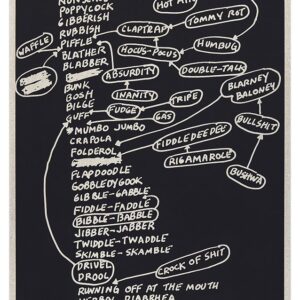 POPPYCOCK
GIBBERISH
RUBBISH
PIFFLE
BLATHER
BLABBER
BUNK
BOSH
BILGE
GUFF
MUMBO JUMBO
CRAPOLA
FOLDEROL
FLAPDOODLE
GOBBLEDYGOOK
GIBBLE-GABBLE
FIDDLE-FADDLE
BIBBLE-BABBLE
JIBBER-JABBER
TWIDDLE-TWADDLE
SKIMBLE-SKAMBLE
DRIVEL
DROOL
RUNNING OFF AT THE MOUTH
VERBAL DIARRHEA
WAFFLE
HOT AIR
TOMMY ROT
CLAPTRAP
HUMBUG
HOCUS-POCUS
DOUBLE-TALK
ABSURDITY
INANITY
FUDGE
TRIPE
GAS
BLARNEY
BALONEY
BULLSHIT
BUSHWA
FIDDLEDEEDEE
RIGAMAROLE
CROCK OF SHIT